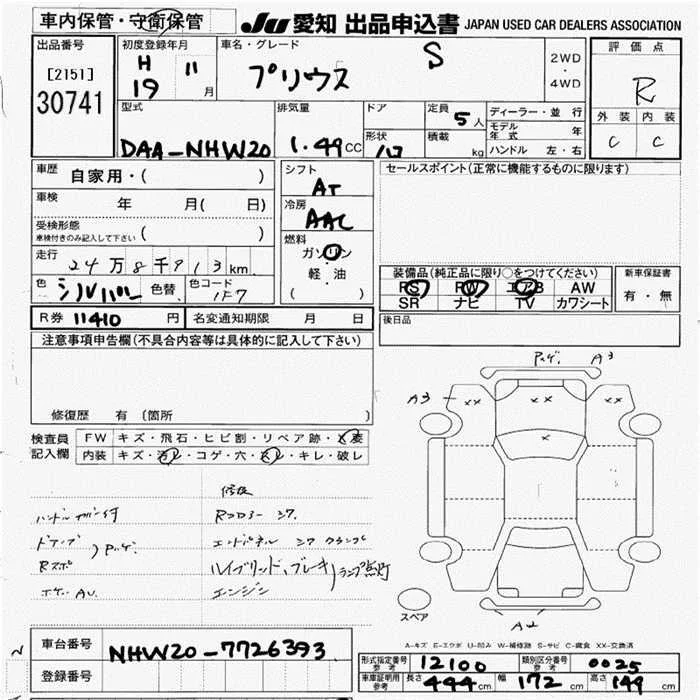 車内保管・守衛保管
JU 愛知 出品申込書 JAPAN USED CAR DEALERS ASSOCIATION
出品番号
[2151]
30741
初度登録年月
H 19 11 月
車名・グレード
プリウス S
2WD
・
4WD
評価点
R
外装 内装
C C
型式
DAA-NHW20
排気量
1.49 CC
ドア
形状
ハコ
定員
5人
積載
kg
ディーラー・並行
モデル年式 年
ハンドル 左・右
車歴
自家用・( )
車検
年 月( 日)
受検形態
車検付きのみ記入して下さい ( )
走行
24万8千913km
色 シルバー 色替 色コード 1F7
シフト
AT
冷房
AAC
燃料
ガソリン
軽・油
( )
セールスポイント(正常に機能するものに限ります)
装備品(純正品に限り○をつけてください)
PS PW エアB AW
SR ナビ TV カワシート
新車保証書
有・無
R券 11410 円 名変通知期限 月 日
後日品
注意事項申告欄(不具合内容等は具体的に記入して下さい)
修復歴 有 〔箇所 〕
検査員
記入欄
FW キズ・飛石・ヒビ割・リペア跡・要
内装 キズ・汚レ・コゲ・穴・スレ・キレ・破レ
P.ゲージ A3
A3 XX XX
X
A2
スペア
修復
ハンドルカバー付
Rフロアー シワ
エンドパネル シワ クランプ
ハイブリッド、ブレーキ ランプ点灯
エンジン
A-キズ E-エクボ U-凹み W-補修跡 S-サビ C-腐食 XX-交換済
車台番号 NHW20-7726393
登録番号
形式指定番号 参考 12100 類別区分番号 参考 0025
車庫証明用 参考 長さ 444cm 幅 172cm 高さ 149cm